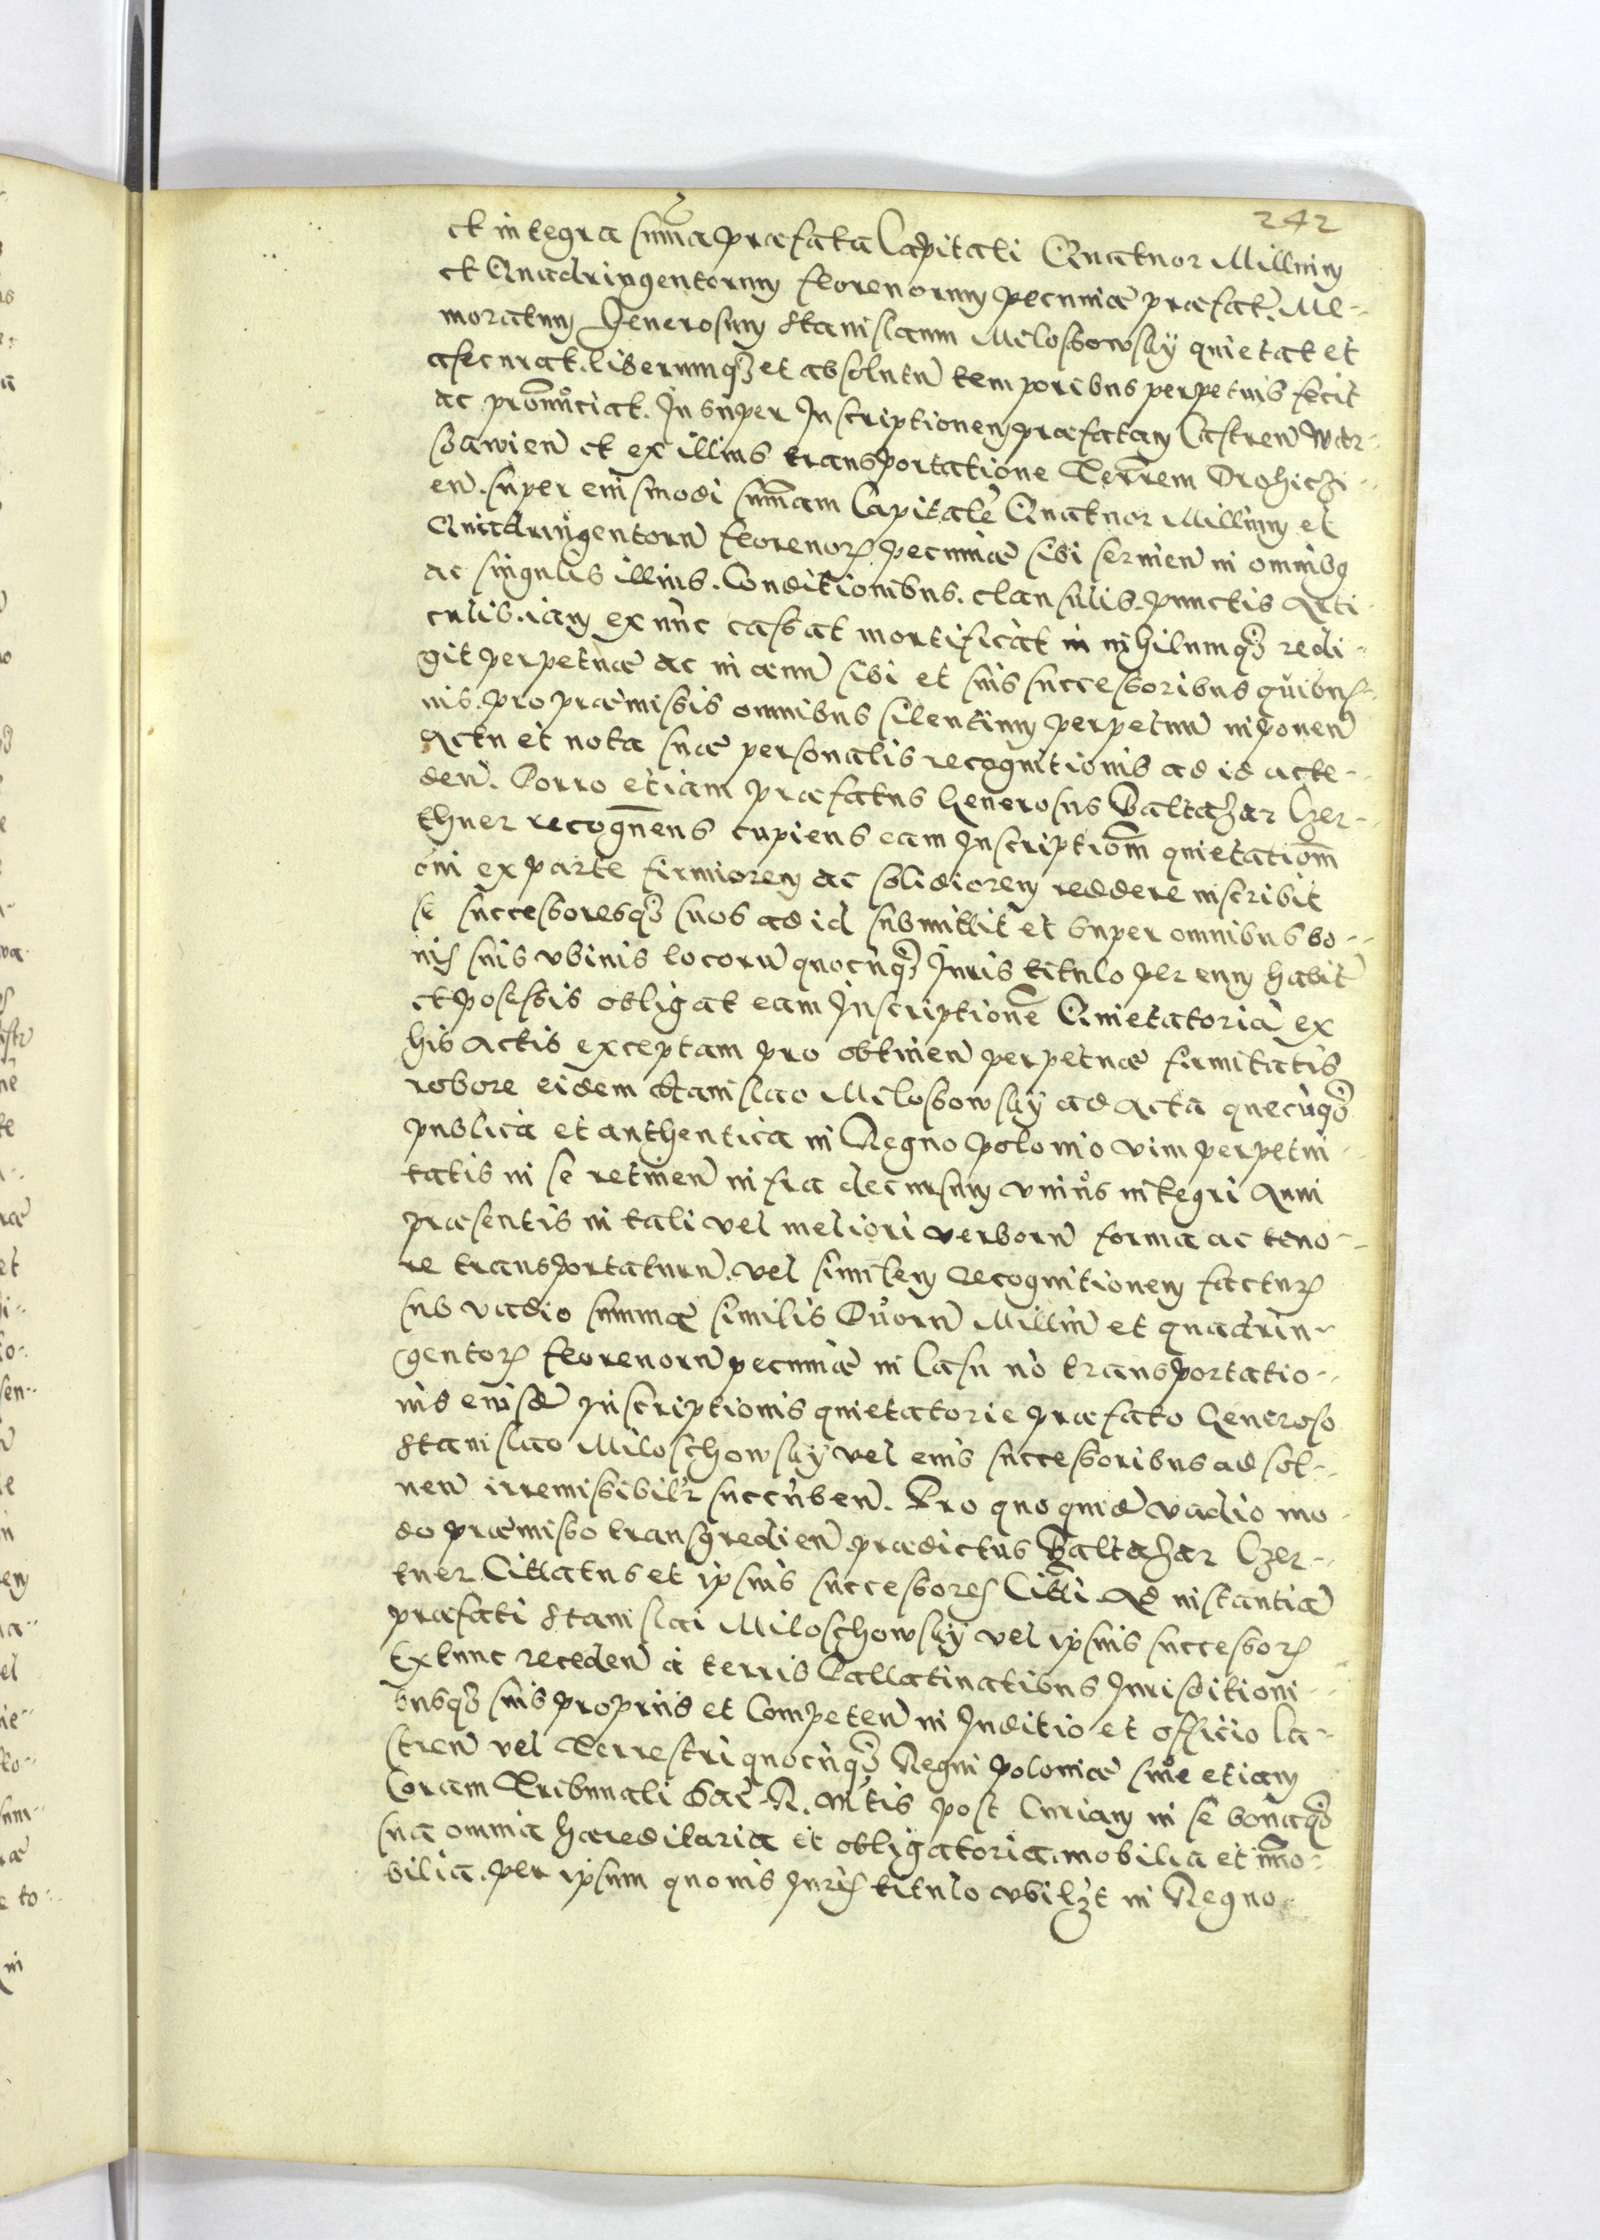 242
et integra sum̃a præfata Capitali Quatuor Millium
et Quadringentorum florenorum pecuniæ præfat. Me-
moratum Generosum Stanislaum Milossowsky quietat et
asecurat. liberumq3 et absolutũ temporibus perpetuis fecit
ac pronũciat. Insuper Inscriptionem præfatam Castreñ War-
sawieñ et ex illius transportatione Terrem Drohiczi-
eñ. super eiusmodi sum̃am Capitalẽ Quatuor Millium et
Quadringentorũ florenor pecuniæ sibi servieñ in omnibꝰ
ac singulis illius. Conditionibus. clausulis. punctis Arti-
culis. iam ex nũc cassat mortificat in nihilumq3 redi-
git perpetuæ ac in ævũ sibi et suis successoribus quibus-
uis. pro præmissis omnibus silentium perpetuũ imponeñ
Actu et nota suæ personalis recognitionis ad id acte-
deñ. Porro etiam præfatus Generosus Baltazar Czer-
thner recogñens cupiens eam Inscriptiom̃ quietatiom̃
oni ex parte firmiorem ac solidiorem reddere inscribit
se successoresq3 suos ad id submittit et super omnibus bo-
nis suis vbiuis locorũ quocũq3 Iuris titulo per eum habit
et posessis obligat eam Inscriptionẽ Quietatoriã ex
his Actis exceptam pro obtineñ perpetuæ firmitatis
robore eidem Stanislao Milossowsky ad Acta quecũq3
publica et authentica in Regno Polonio vim perpetui-
tatis in se retineñ infra decursum vnius integri Anni
præsentis in tali vel meliori verborũ forma ac teno-
re transportaturũ. vel similem Recognitionem factur
sub vadio summæ similis Quorũ Milliũ et quadrin-
gentor florenorũ pecuniæ in Casu nõ transportatio-
nis eiusdẽ Inscriptionis quietatorie præfato Generoso
Stanislao Miloschowsky vel eius successoribus ad sol-
ueñ irremissibilr succũbeñ. Pro quo quidẽ vadio mo-
do præmisso transgredieñ prædictus Baltazar Czer-
tner Cittatus et ipsius successores Citti Ad instantiã
præfati Stanislai Miloschowsky vel ipsius successor
Extunc recedeñ à terris Pallatinatibus Iurisditioni-
busq3 suis proprijs et Competeñ in Inditio et officio Ca-
streñ vel Terrestri quocũq3 Regni Poloniæ siue etiam
Coram Tribunali Sac. R. Mtis post Curiam in se bonaq3
sua omnia hæreditaria et obligatoria. mobilia et im̃o-
bilia. per ipsum quouis Iuris titulo vbilzt in Regno